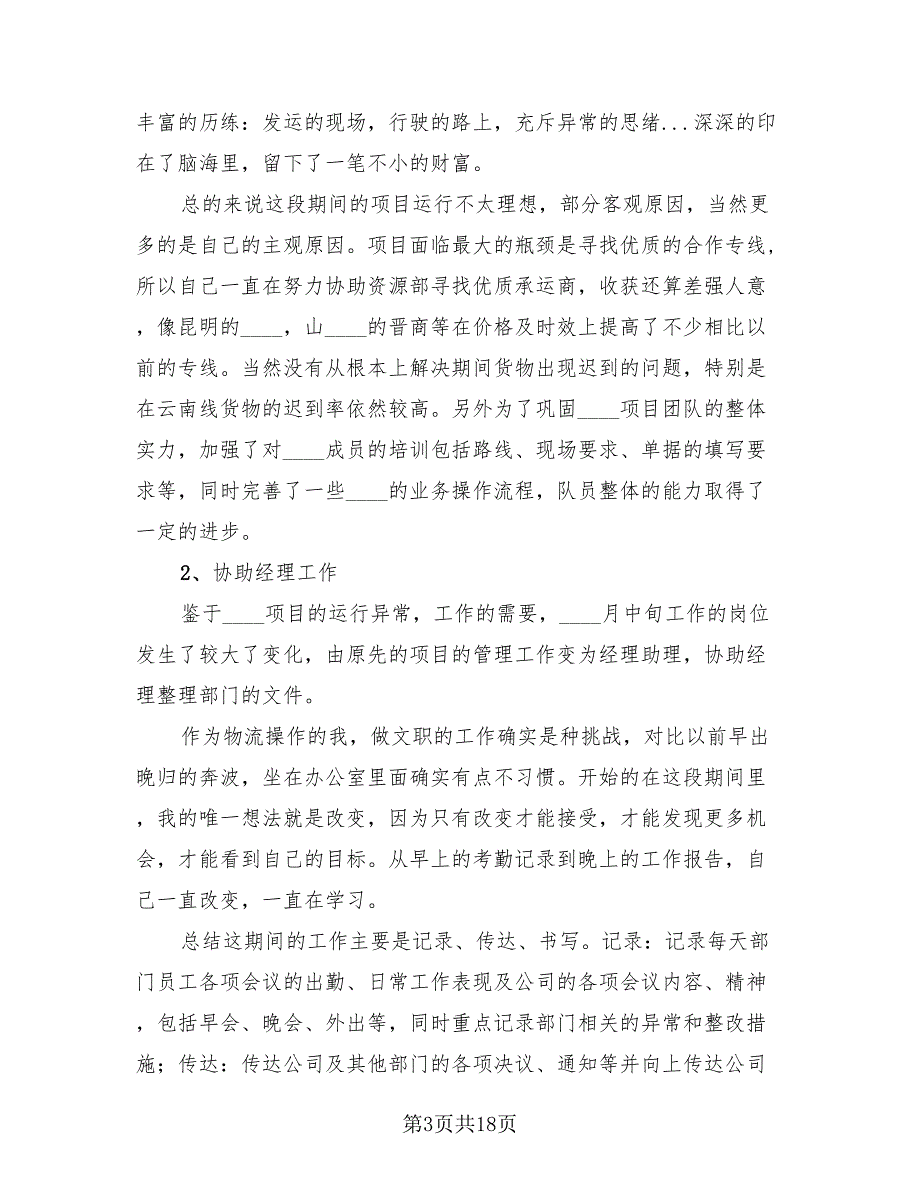 丰富的历练：发运的现场，行驶的路上，充斥异常的思绪...深深的印
在了脑海里，留下了一笔不小的财富。
总的来说这段期间的项目运行不太理想，部分客观原因，当然更
多的是自己的主观原因。项目面临最大的瓶颈是寻找优质的合作专线，
所以自己一直在努力协助资源部寻找优质承运商，收获还算差强人意
，像昆明的____，山____的晋商等在价格及时效上提高了不少相比以
前的专线。当然没有从根本上解决期间货物出现迟到的问题，特别是
在云南线货物的迟到率依然较高。另外为了巩固____项目团队的整体
实力，加强了对____成员的培训包括路线、现场要求、单据的填写要
求等，同时完善了一些____的业务操作流程，队员整体的能力取得了
一定的进步。
2、协助经理工作
鉴于____项目的运行异常，工作的需要，____月中旬工作的岗位
发生了较大了变化，由原先的项目的管理工作变为经理助理，协助经
理整理部门的文件。
作为物流操作的我，做文职的工作确实是种挑战，对比以前早出
晚归的奔波，坐在办公室里面确实有点不习惯。开始的在这段期间里
，我的唯一想法就是改变，因为只有改变才能接受，才能发现更多机
会，才能看到自己的目标。从早上的考勤记录到晚上的工作报告，自
己一直改变，一直在学习。
总结这期间的工作主要是记录、传达、书写。记录：记录每天部
门员工各项会议的出勤、日常工作表现及公司的各项会议内容、精神
，包括早会、晚会、外出等，同时重点记录部门相关的异常和整改措
施；传达：传达公司及其他部门的各项决议、通知等并向上传达公司
第3页共18页